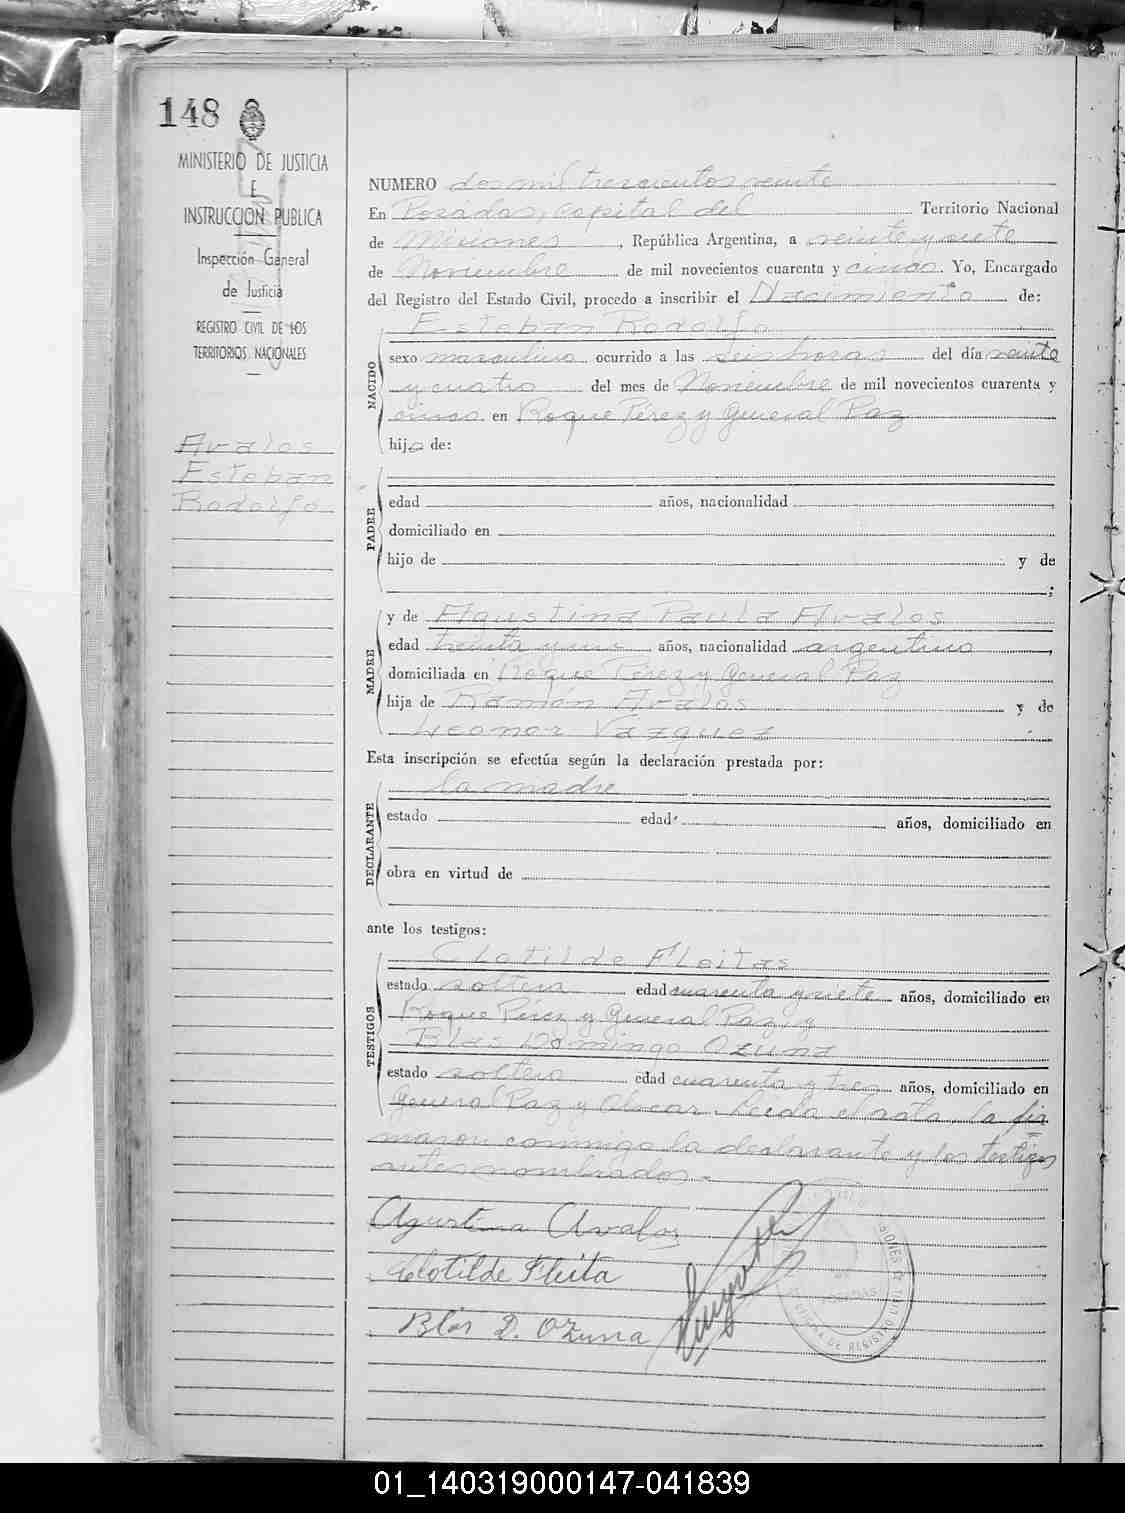 148
MINISTERIO DE JUSTICIA
E
INSTRUCCION PUBLICA
Inspección General
de Justicia
REGISTRO CIVIL DE LOS
TERRITORIOS NACIONALES
Avalos
Esteban
Rodolfo
NUMERO dos mil trescientos veinte
En Posadas, capital del Territorio Nacional
de Misiones, República Argentina, a veinte y siete
de Noviembre de mil novecientos cuarenta y cinco. Yo, Encargado
del Registro del Estado Civil, procedo a inscribir el Nacimiento de:
NACIDO
Esteban Rodolfo
sexo masculino ocurrido a las seis horas del día veinte
y cuatro del mes de Noviembre de mil novecientos cuarenta y
cinco en Roque Pérez y General Paz
hijo de:
PADRE
edad años, nacionalidad
domiciliado en
hijo de y de
;
MADRE
y de Agustina Paula Avalos
edad treinta y un años, nacionalidad argentina,
domiciliada en Roque Pérez y General Paz
hija de Ramón Avalos y de
Leonor Vazquez
Esta inscripción se efectúa según la declaración prestada por:
DECLARANTE
la madre
estado edad años, domiciliado en
obra en virtud de
ante los testigos:
TESTIGOS
Clotilde Fleitas
estado soltera edad cuarenta y siete años, domiciliado en
Roque Pérez y General Paz y
Blas Domingo Ozuna
estado soltero edad cuarenta y tres años, domiciliado en
General Paz y Leida el acta, la fir
maron conmigo la declarante y los testigos
antes nombrados.-
Agustina Avalos
Clotilde Fleita
Blas D. Ozuna
POSADAS
01_140319000147-041839